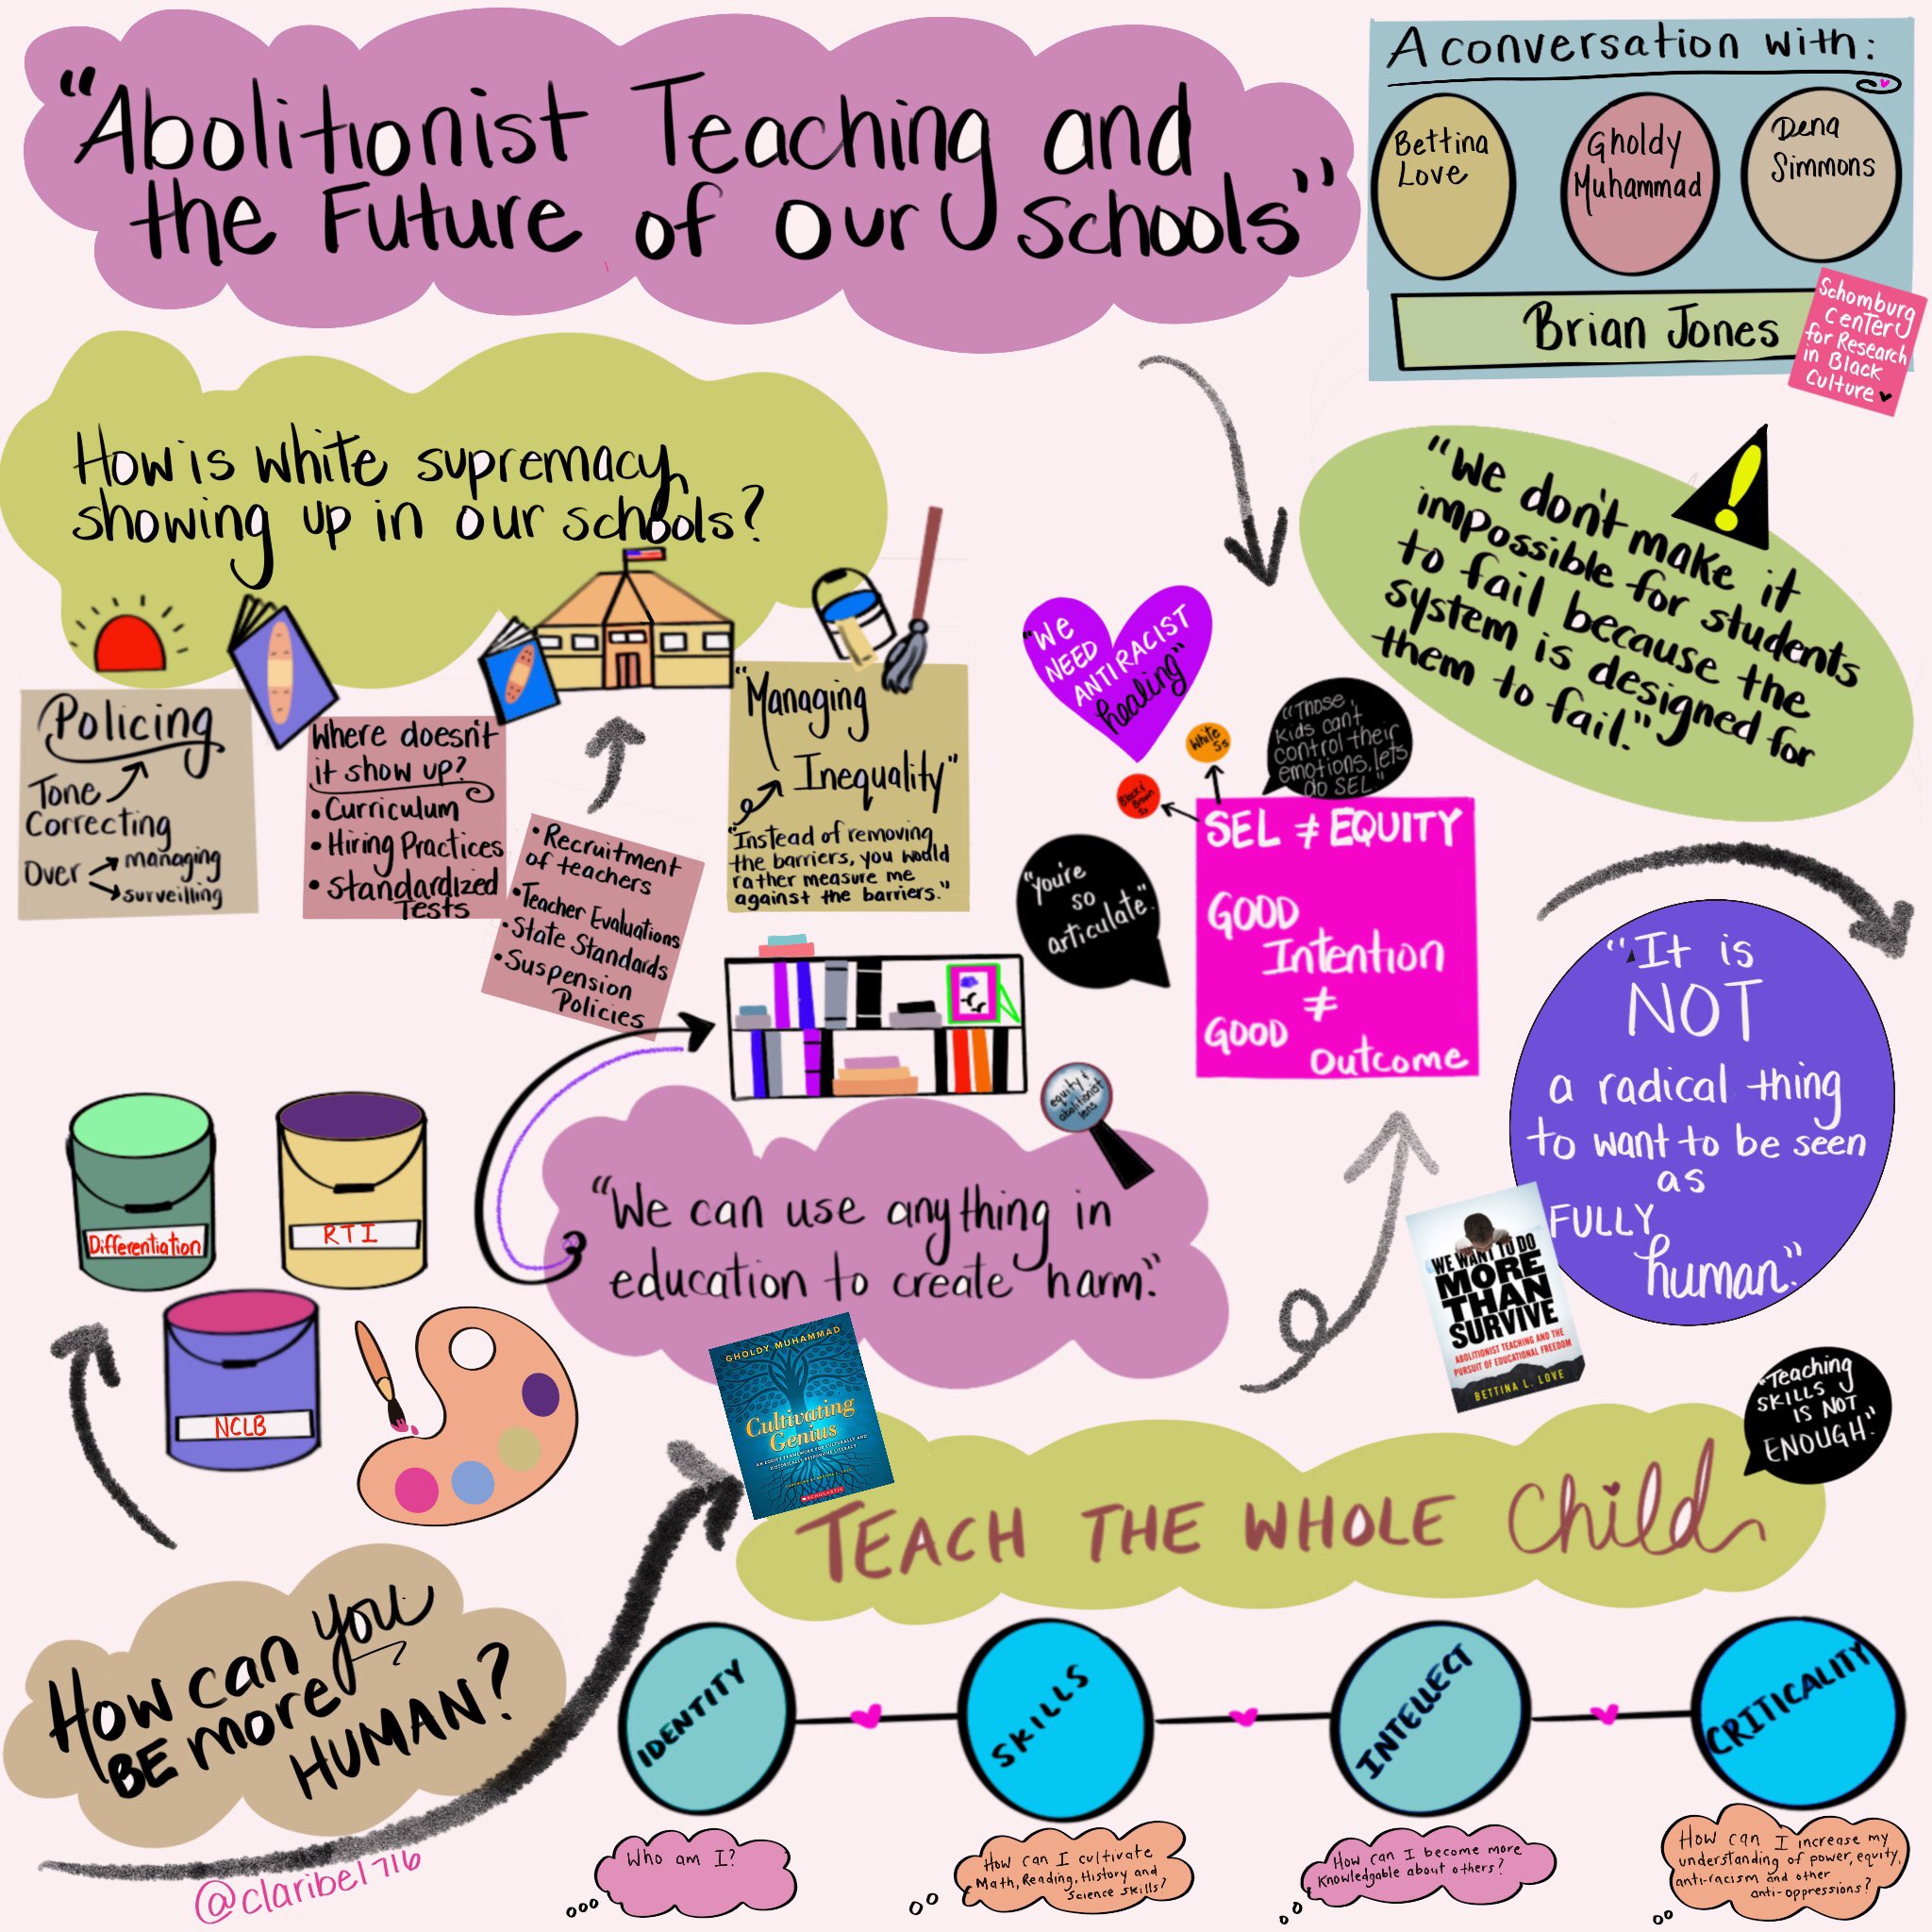 "Abolitionist Teaching and
the Future of our schools"
A conversation with:
Bettina
Love
Gholdy
Muhammad
Dena
Simmons
Brian Jones
Schomburg
Center
for Research
in Black
Culture
How is white supremacy
showing up in our schools?
"We don't make it
impossible for students
to fail because the
system is designed for
them to fail."
Policing
Tone
Correcting
Over managing
surveilling
Where doesn't
it show up?
• Curriculum
• Hiring Practices
• Standardized
Tests
• Recruitment
of teachers
• Teacher Evaluations
• State Standards
• Suspension
Policies
"Managing
Inequality"
"Instead of removing
the barriers, you would
rather measure me
against the barriers."
"We
NEED
ANTIRACIST
healing"
White
Ss
Black &
Brown
Ss
"Those
kids can't
control their
emotions, lets
do SEL."
"you're
so
articulate."
SEL ≠ EQUITY
GOOD
Intention
≠
GOOD
Outcome
"It is
NOT
a radical thing
to want to be seen
as
FULLY
human."
equity &
abolitionist
lens
"We can use anything in
education to create harm."
Differentiation
RTI
NCLB
GHOLDY MUHAMMAD
Cultivating
Genius
AN EQUITY FRAMEWORK FOR CULTURALLY AND
HISTORICALLY RESPONSIVE LITERACY
SCHOLASTIC
WE WANT TO DO
MORE
THAN
SURVIVE
ABOLITIONIST TEACHING AND THE
PURSUIT OF EDUCATIONAL FREEDOM
BETTINA L. LOVE
"Teaching
SKILLS
IS NOT
ENOUGH."
TEACH THE WHOLE child
How can you
BE more
HUMAN?
IDENTITY
SKILLS
INTELLECT
CRITICALITY
Who am I?
How can I cultivate
Math, Reading, History and
Science skills?
How can I become more
knowledgable about others?
How can I increase my
understanding of power, equity,
anti-racism and other
anti-oppressions?
@claribel716